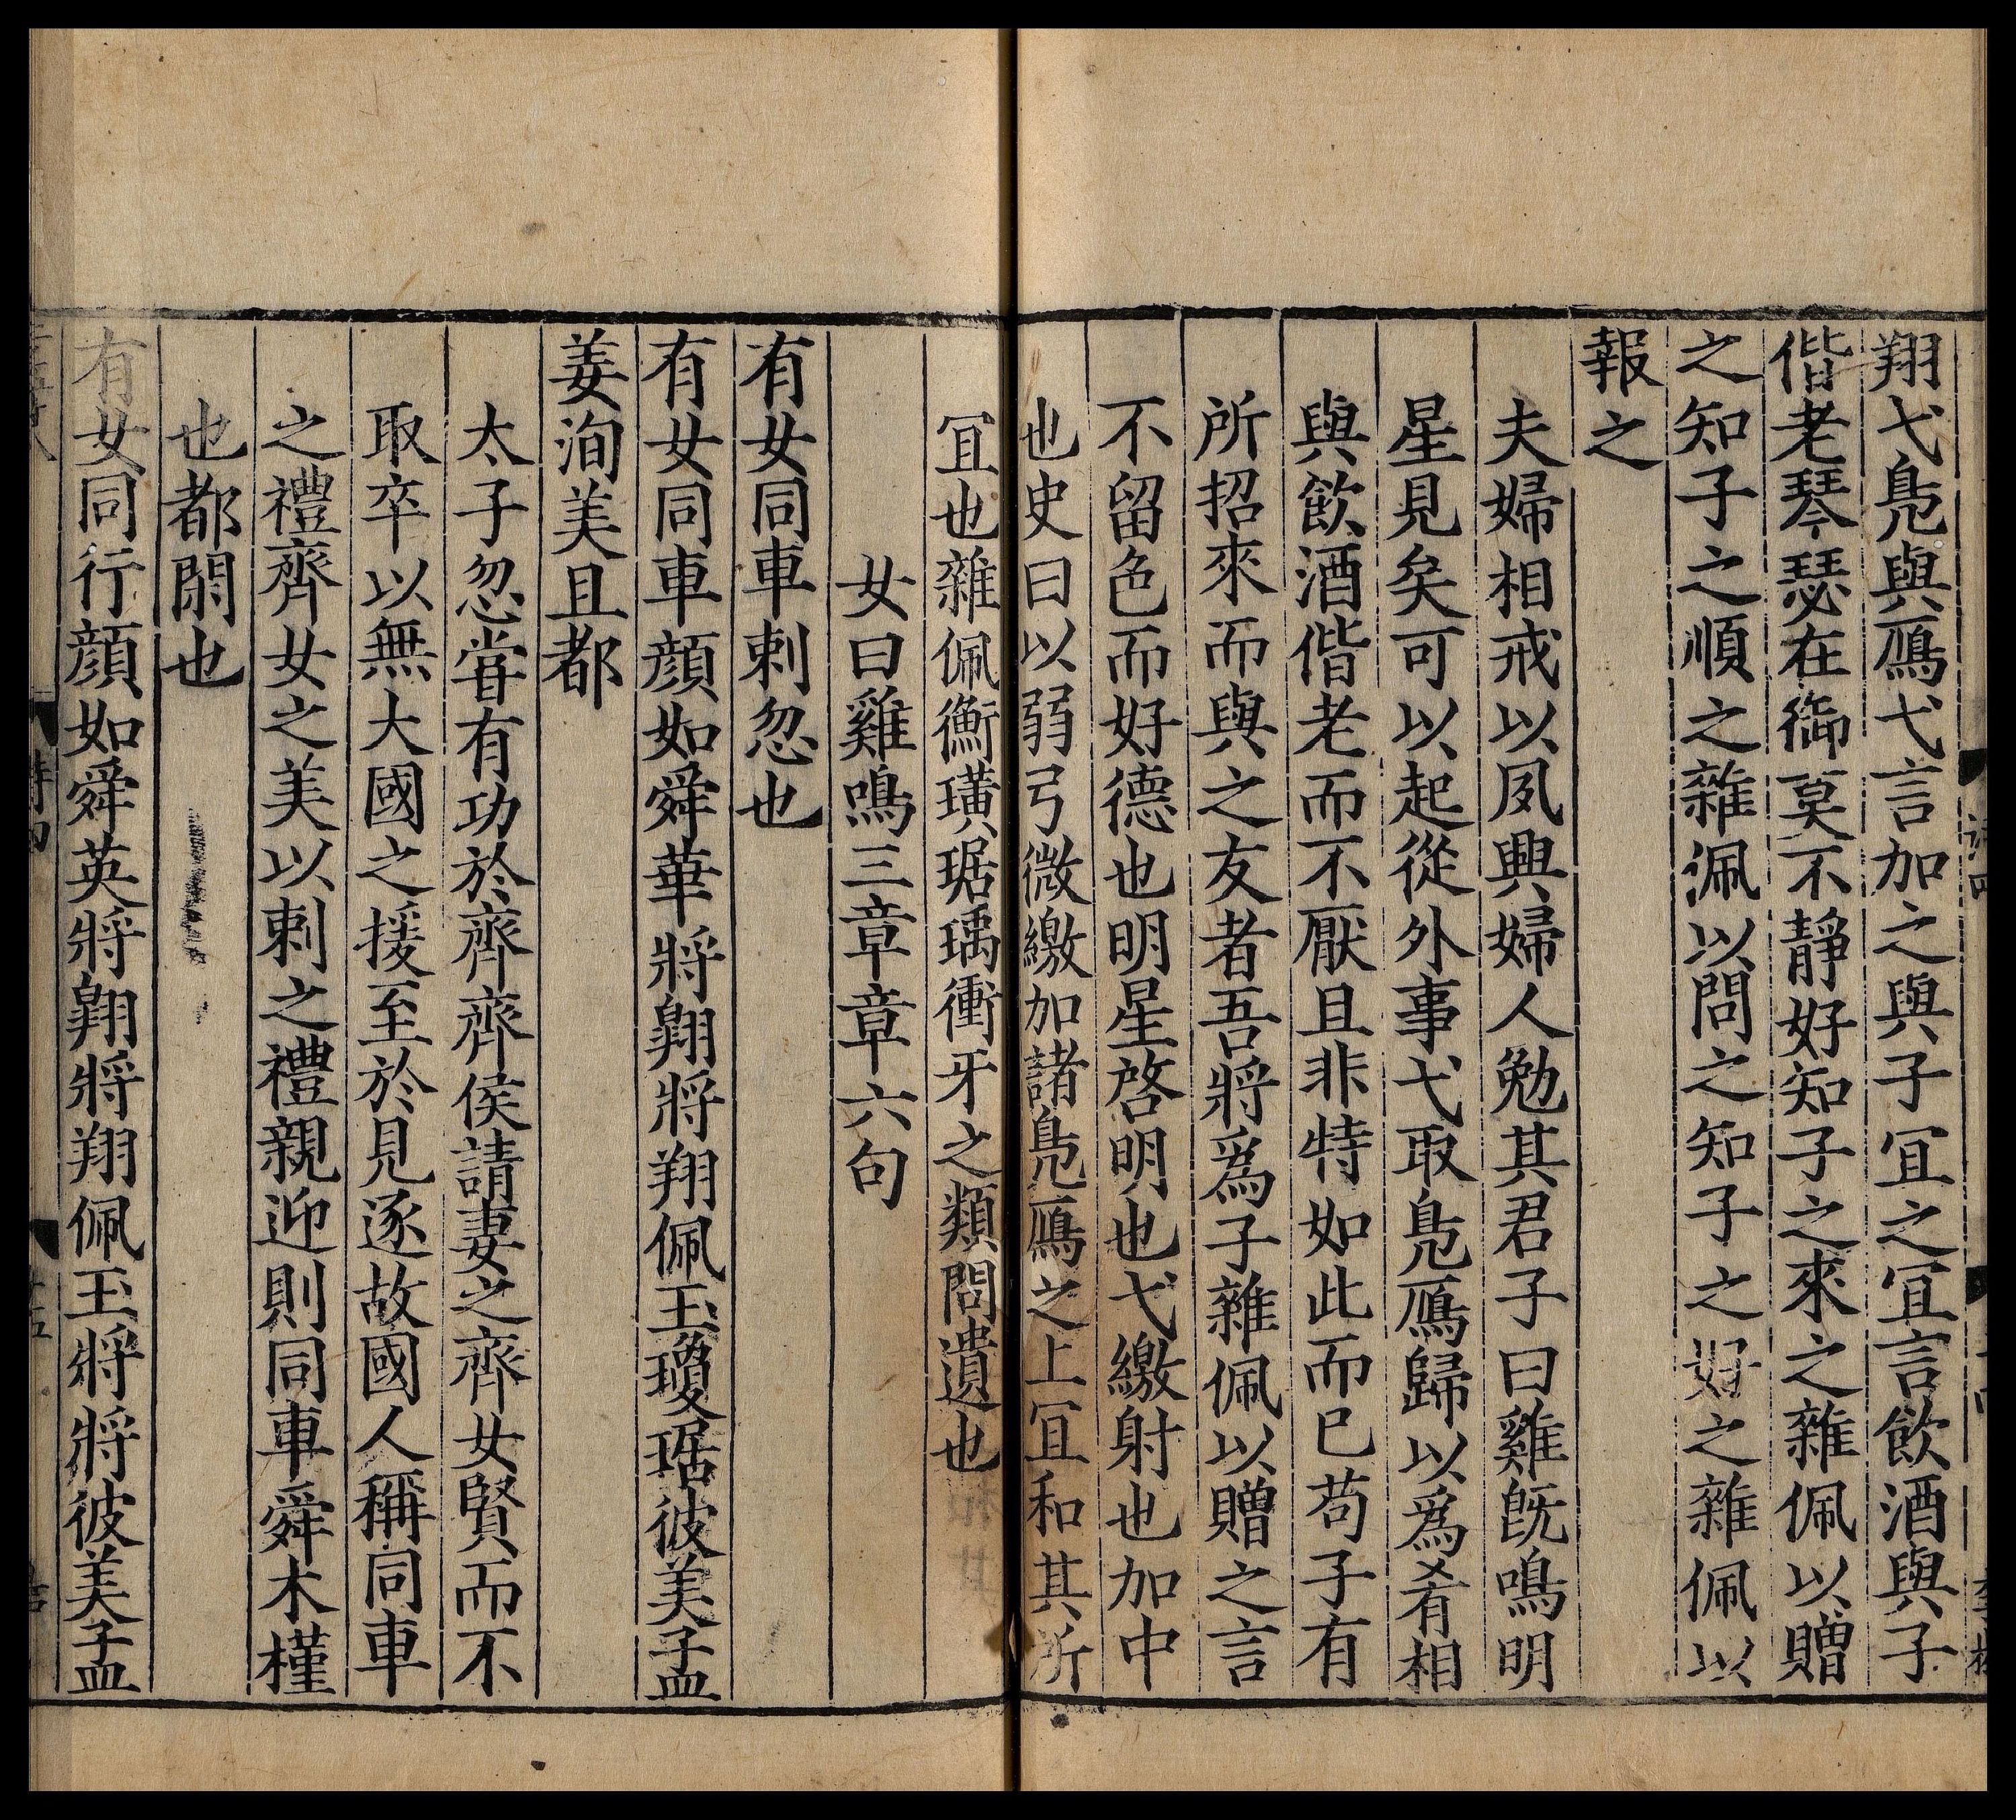 翔弋鳧與鴈弋言加之與子冝之冝言飲酒與子
偕老琴瑟在御莫不靜好知子之來之雜佩以贈
之知子之順之雜佩以問之知子之好之雜佩以
報之
夫婦相戒以夙興婦人勉其君子曰雞旣鳴明
星見矣可以起從外事弋取鳧鴈歸以爲肴相
與飲酒偕老而不厭且非特如此而已苟子有
所招來而與之友者吾將爲子雜佩以贈之言
不留色而好德也明星啓明也弋繳射也加中
也史曰以弱弓微繳加諸鳧鴈之上冝和其所
冝也雜佩衡璜琚瑀衝牙之類問遺也
女曰雞鳴三章章六句
有女同車刺忽也
有女同車顔如舜華將翺將翔佩玉瓊琚彼美孟
姜洵美且都
太子忽甞有功於齊齊侯請妻之齊女賢而不
取卒以無大國之援至於見逐故國人稱同車
之禮齊女之美以刺之禮親迎則同車舜木槿
也都閑也
有女同行顔如舜英將翺將翔佩玉將將彼美孟